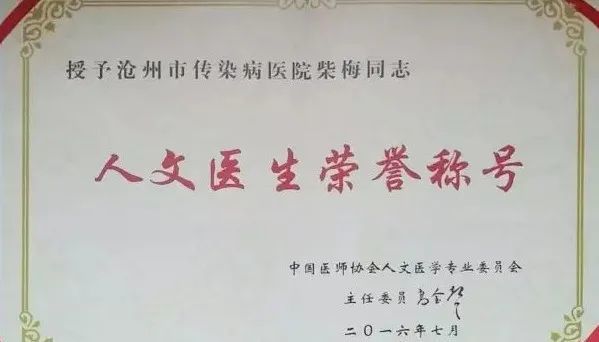 授予沧州市传染病医院柴梅同志
人文医生荣誉称号
中国医师协会人文医学专业委员会
主任委员
二〇一六年七月